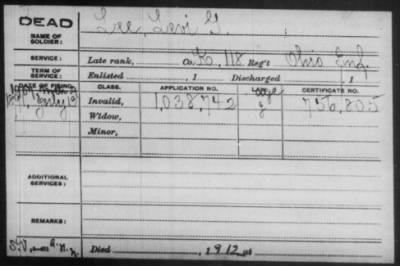 DEAD
NAME OF SOLDIER: Lee, Levi G.
SERVICE: Late rank, Co. K, 118 Reg't Ohio Inf.
TERM OF SERVICE: Enlisted , 1 Discharged , 1
DATE OF FILING. CLASS. APPLICATION NO. LAW. CERTIFICATE NO.
Invalid, 1,038,742 756,805
Widow,
Minor,
ADDITIONAL SERVICES:
REMARKS:
Died , 1912, at